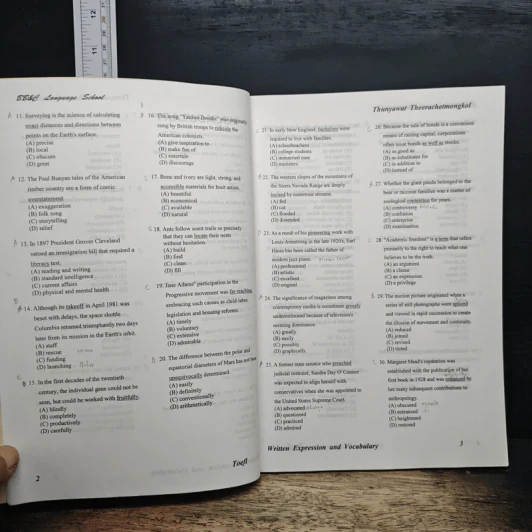 BB&C Language School
11. Surveying is the science of calculating
exact distances and directions between
points on the Earth's surface.
(A) precise
(B) local
(C) obscure
(D) great
12. The Paul Bunyan tales of the American
timber country are a form of comic
overstatement.
(A) exaggeration
(B) folk song
(C) storytelling
(D) relief
13. In 1897 President Grover Cleveland
vetoed an immigration bill that required a
literacy test.
(A) reading and writing
(B) standard intelligence
(C) current affairs
(D) physical and mental health
14. Although its takeoff in April 1981 was
beset with delays, the space shuttle
Columbia returned triumphantly two days
later from its mission in the Earth's orbit.
(A) staff
(B) rescue
(C) funding
(D) launching
15. In the first decades of the twentieth
century, the individual gene could not be
seen, but could be worked with fruitfully.
(A) blindly
(B) completely
(C) productively
(D) carefully
2
16. The song "Yankee Doodle" was originally
sung by British troops to ridicule the
American colonists.
(A) give inspiration to
(B) make fun of
(C) entertain
(D) discourage
17. Bone and ivory are light, strong, and
accessible materials for Inuit artists.
(A) beautiful
(B) economical
(C) available
(D) natural
18. Ants follow scent trails so precisely
that they can locate their nests
without hesitation.
(A) build
(B) find
(C) clean
(D) fill
19. Jane Adams' participation in the
Progressive movement was far-reaching,
embracing such causes as child labor
legislation and housing reforms.
(A) timely
(B) voluntary
(C) extensive
(D) admirable
20. The difference between the polar and
equatorial diameters of Mars has not been
unequivocally determined.
(A) easily
(B) definitely
(C) conventionally
(D) arithmetically
Toefl
Thunyawat Theerachetmongkol
21. In early New England, bachelors were
required to live with families.
(A) schoolteachers
(B) college students
(C) unmarried men
(D) ministers
22. The western slopes of the mountains of
the Sierra Nevada Range are deeply
incised by numerous streams.
(A) fed
(B) cut
(C) flooded
(D) diverted
23. As a result of his pioneering work with
Louis Armstrong in the late 1920's, Earl
Hines has been called the father of
modern jazz piano.
(A) professional
(B) artistic
(C) excellent
(D) original
24. The significance of magazines among
contemporary media is sometimes grossly
underestimated because of television's
seeming dominance.
(A) greatly
(B) easily
(C) possibly
(D) graphically
25. A former state senator who preached
judicial restraint, Sandra Day O'Connor
was expected to align herself with
conservatives when she was appointed to
the United States Supreme Court.
(A) advocated
(B) questioned
(C) practiced
(D) admired
Written Expression and Vocabulary
26. Because the sale of bonds is a convenient
means of raising capital, corporations
often issue bonds as well as stocks.
(A) as good as
(B) as substitutes for
(C) in addition to
(D) instead of
27. Whether the giant panda belonged to the
bear or raccoon families was a matter of
zoological contention for years.
(A) controversy
(B) confusion
(C) enterprise
(D) examination
28. "Academic freedom" is a term that refers
primarily to the right to teach what one
believes to be the truth.
(A) an argument
(B) a clause
(C) an expression
(D) a privilege
29. The motion picture originated when a
series of still photographs were spliced
and viewed in rapid succession to create
the illusion of movement and continuity.
(A) reduced
(B) joined
(C) revised
(D) tinted
30. Margaret Mead's reputation was
established with the publication of her
first book in 1928 and was enhanced by
her many subsequent contributions to
anthropology.
(A) obscured
(B) entranced
(C) heightened
(D) restored
3